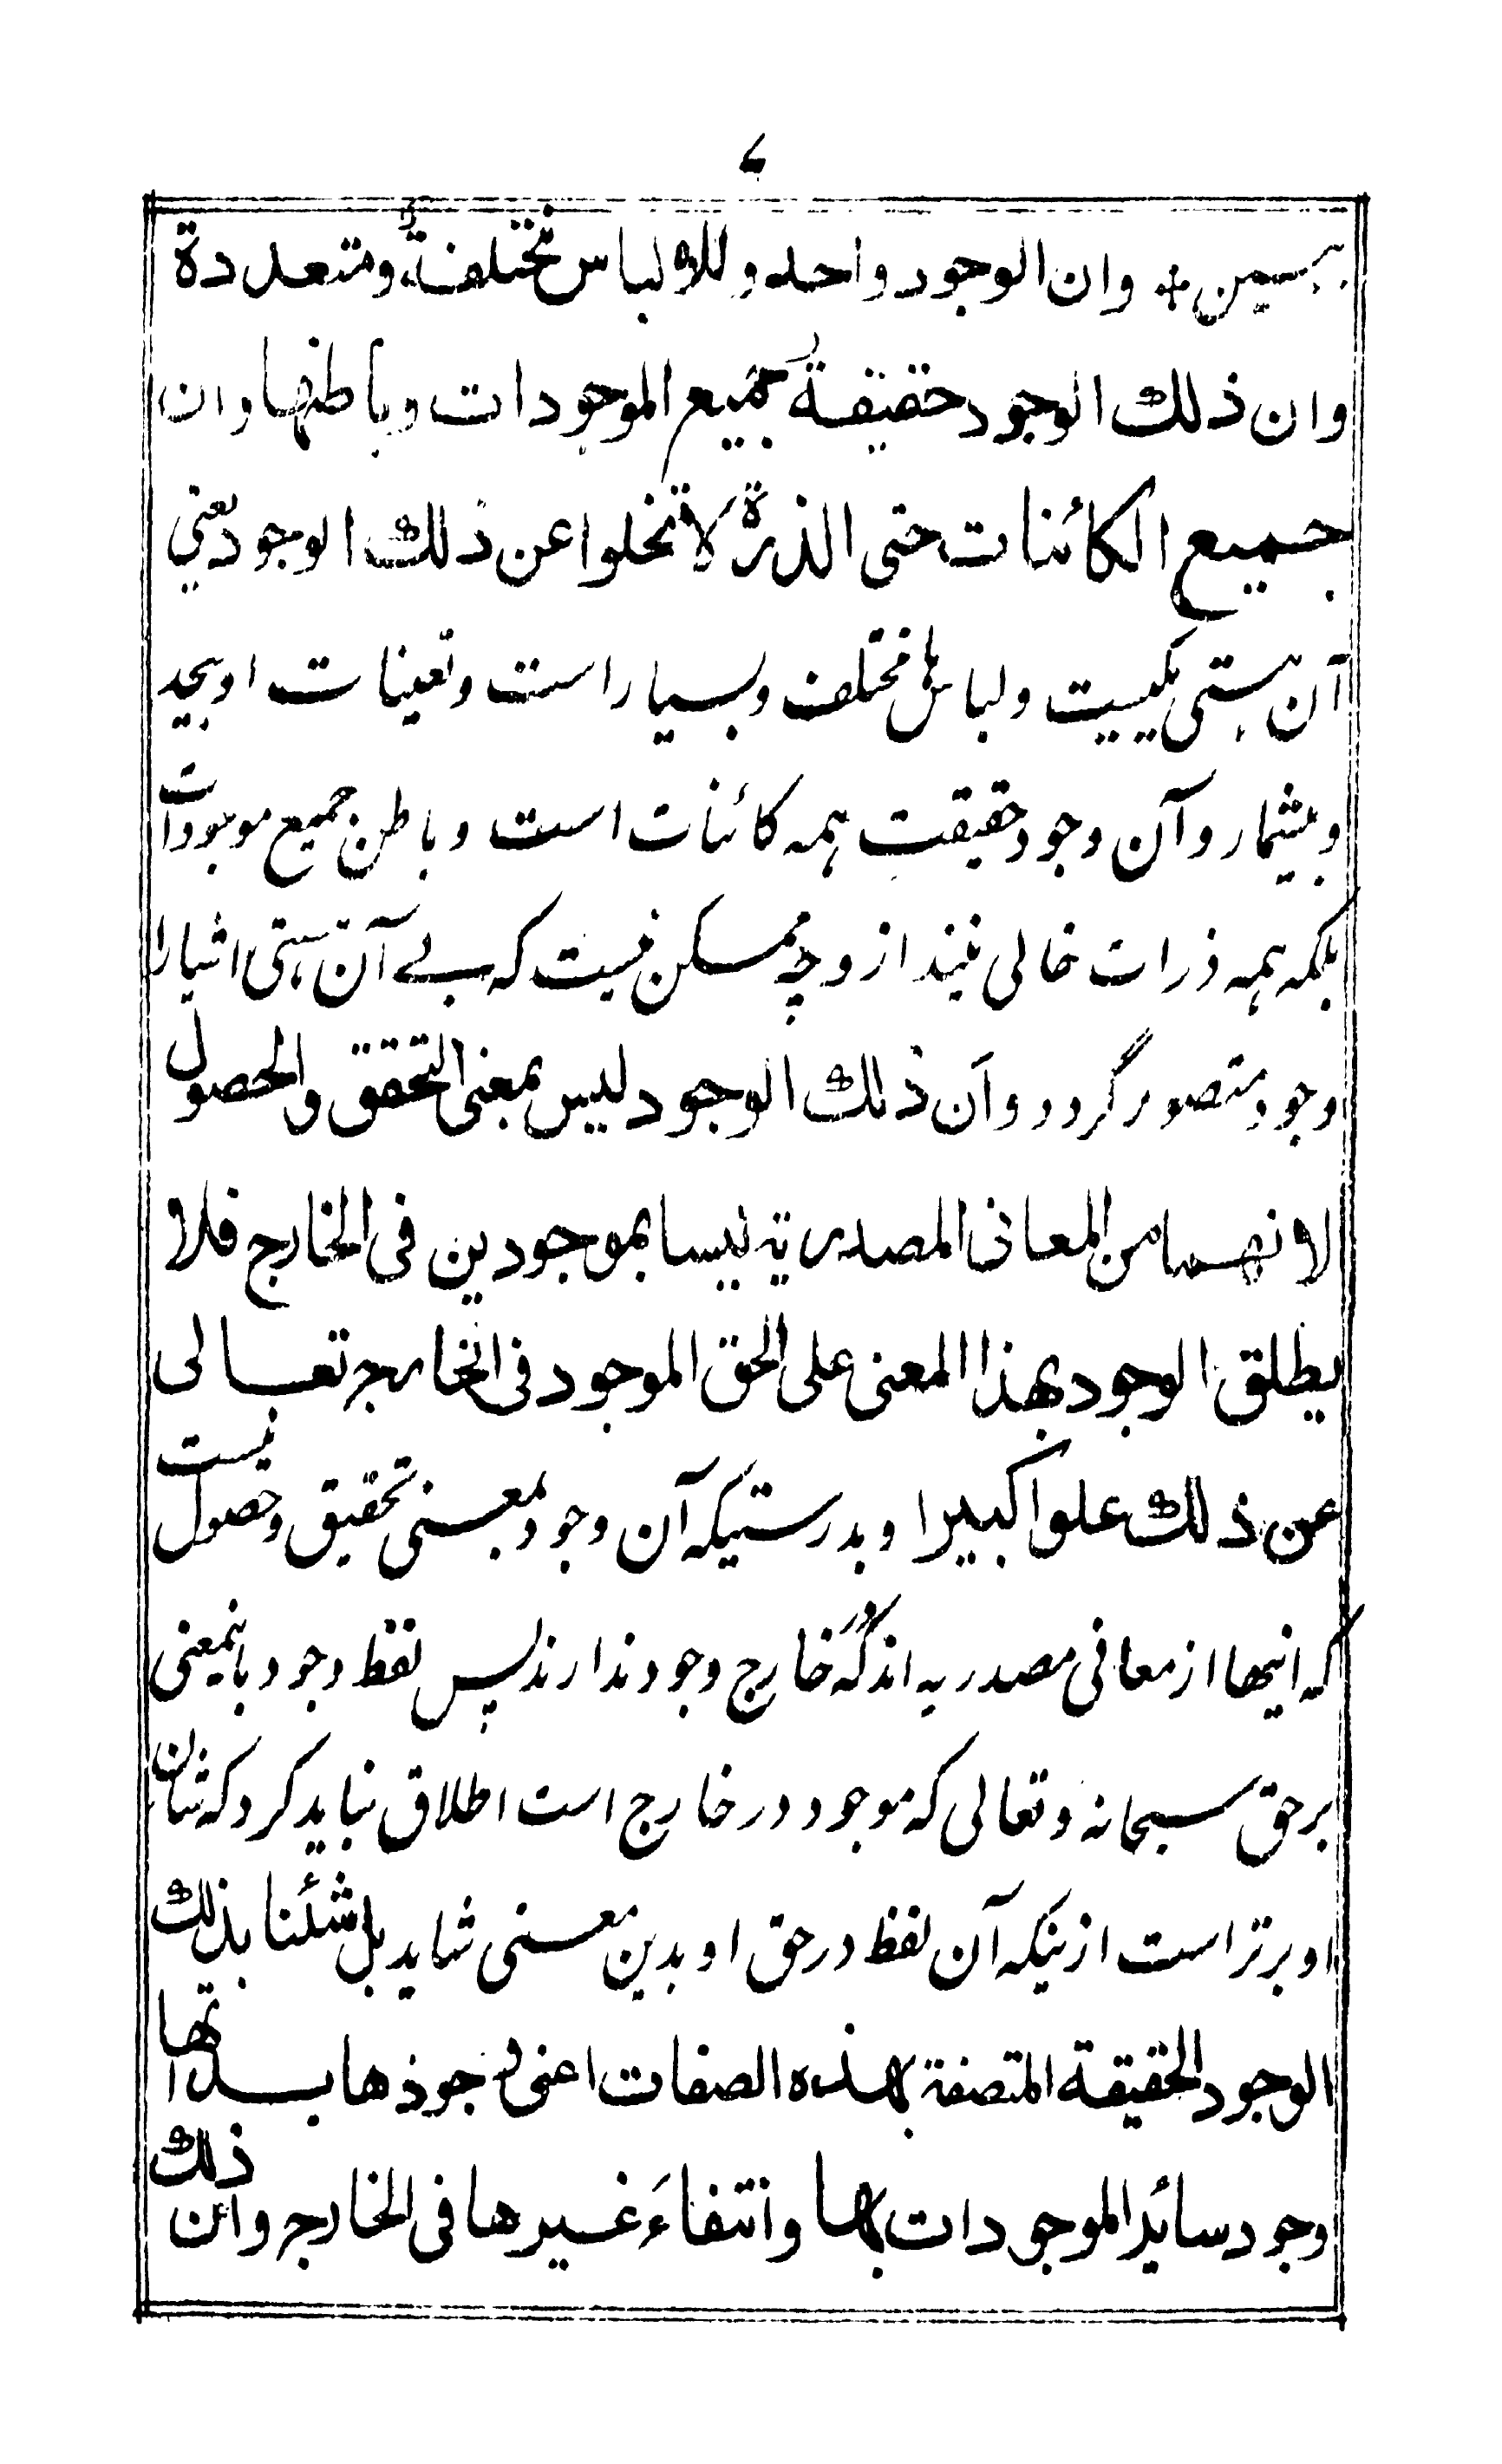 ببین + وان الوجود واحد وللالباس مختلفة ومتعددة
وان ذلك الوجود حقيقة جميع الموجودات وباطنها وان
جميع الكائنات حتى الذرة لا تخلوا عن ذلك الوجود یعنی
آن ہستی یکیست ولباس ہا مختلف وبسیار است وتعینات او بیحد
وبیشمار وآن وجود حقیقت ہمہ کائنات است وباطن جمیع موجودات
بلکہ ہمہ ذرات خالی نیند از وچہ ممکن نیست کہ بے آن ہستی اشیا را
وجود متصور گردد وان ذلك الوجود ليس بمعنى التحقق والحصول
لانهما من المعانى المصدرية ليسا بموجودين فى الخارج فلا
يطلق الوجود بهذا المعنى على الحق الموجود فى الخارج تعالى
عن ذلك علوا كبيرا وبدرستیکہ آن وجود بمعنی تحقیق وحصول نیست
کہ اینها از معانی مصدریہ اند کہ در خارج وجود ندارند پس لفظ وجود باینمعنی
بر حق سبحانہ وتعالی کہ موجود در خارج است اطلاق نباید کرد کہ شان
او برتر است ازینکہ آن لفظ در حق او بدین معنی شاید بل شئنا بذلك
الوجود الحقيقة المتصفة بهذه الصفات اعنى وجودها بذاتها
وجود سائر الموجودات بها وانتفاء غيرها فى الخارج وان ذلك